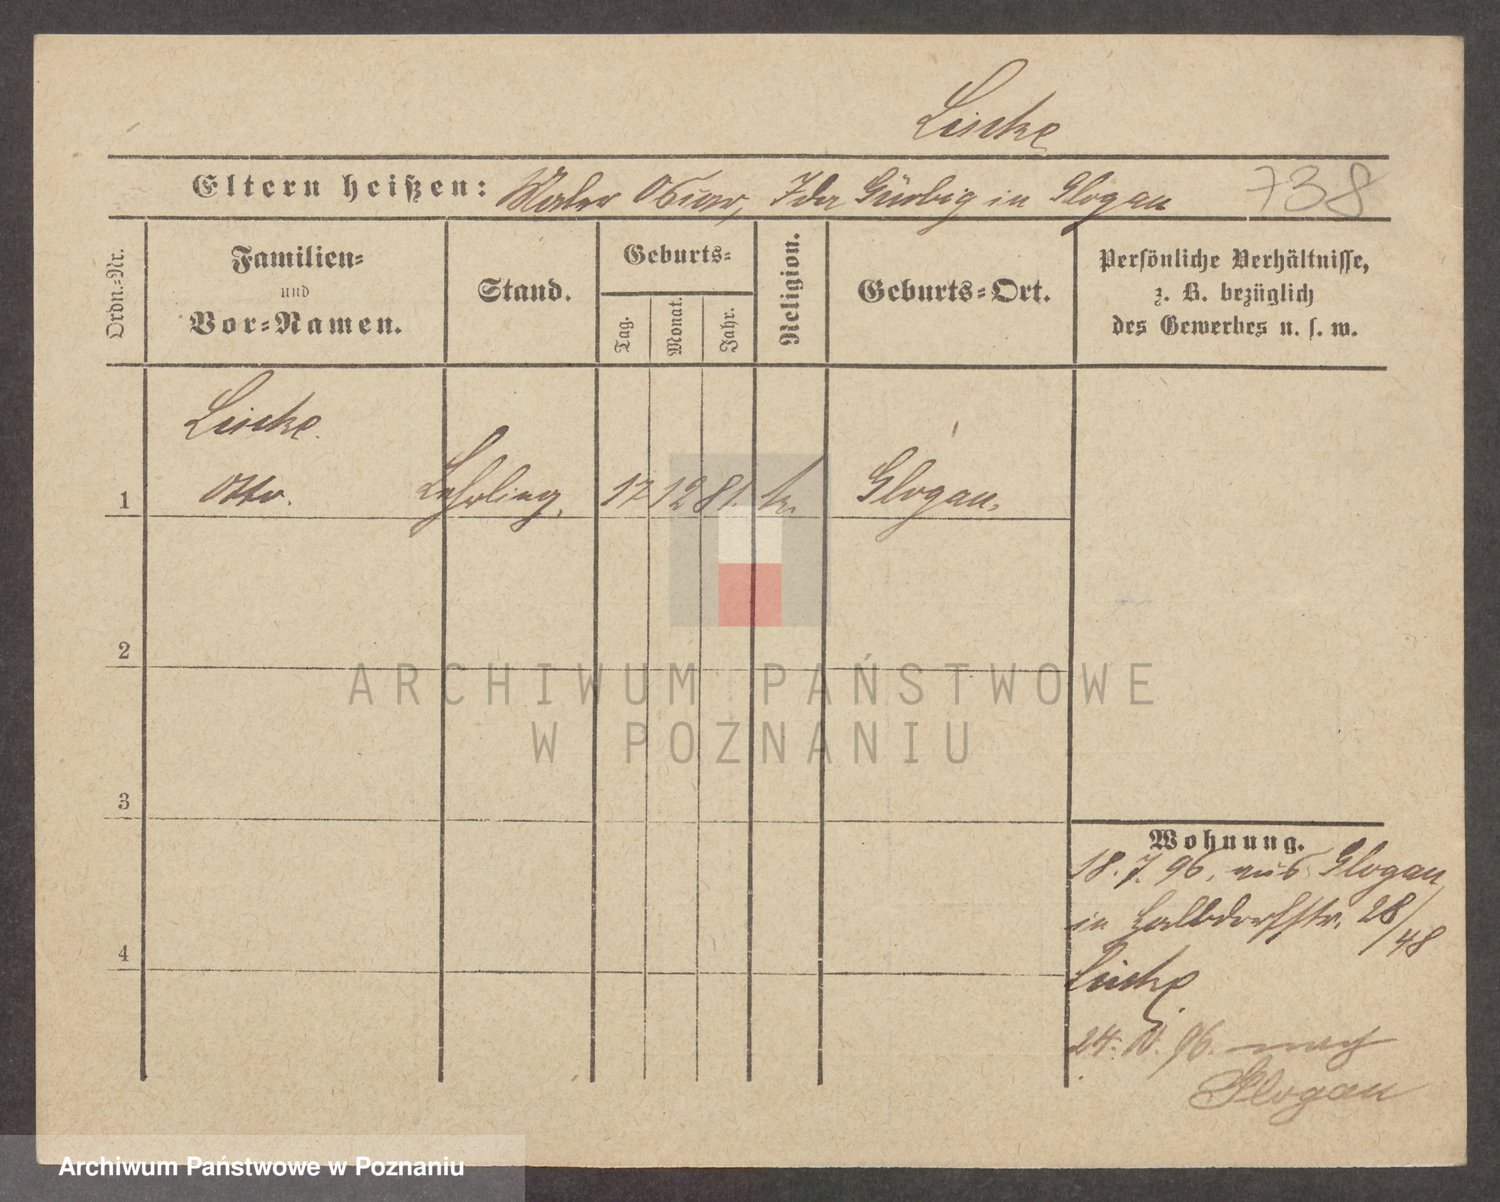 Lischke
Eltern heißen: Maler Oscar, Ida Gürbig in Glogau 738
Ordn.-Nr.
Familien-
und
Vor-Namen.
Stand.
Geburts-
Tag.
Monat.
Jahr.
Religion.
Geburts-Ort.
Persönliche Verhältnisse,
z. B. bezüglich
des Gewerbes u. s. w.
Lischke.
1 Otto. Lehrling, 17 12 81. k. Glogau.
2
3
4
Wohnung.
18. 7. 96. aus Glogau
in Halbdorfstr. 28/48
Lischke
24. 96. nach
Glogau
ARCHIWUM PAŃSTWOWE
W POZNANIU
Archiwum Państwowe w Poznaniu